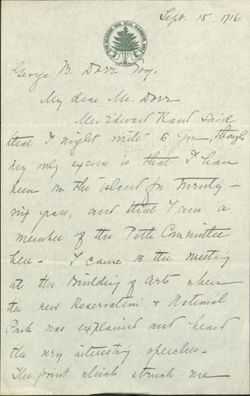 Sept. 15. 1916
George B. Dorr Esq.
My dear Mr. Dorr
Mr. Edward Rand said
that I might write to you, though
my only excuse is that I have
been on the island for twenty-
six years, and that I am a
member of the Path Committee
here - I came to the meeting
at the Building of Arts when
the new Reservation & National
Park was explained and heard
the very interesting speeches -
The point which struck me